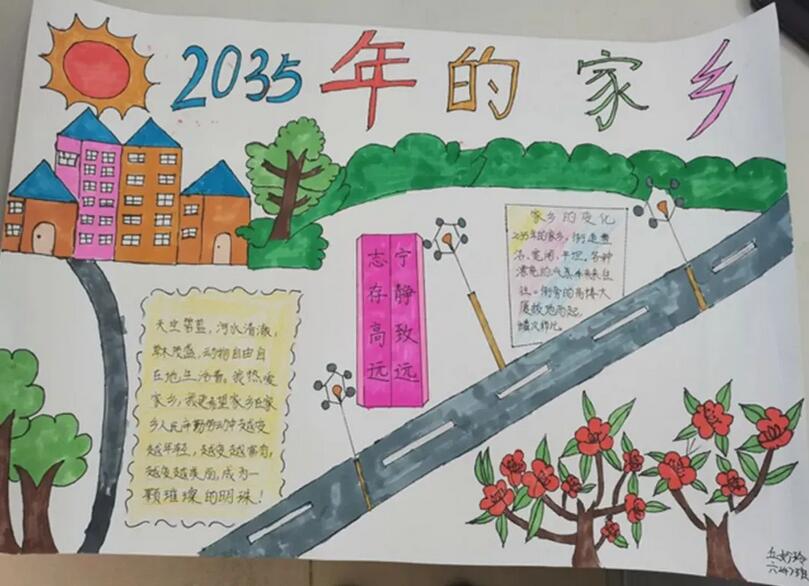 2035年的家乡
宁静致远
志存高远
家乡的变化
2035年的家乡，街道整
洁、宽阔、平坦。各种
漂亮的代某车来来往
往。街旁的高楼大
厦拔地而起，
鳞次栉比。
天空碧蓝，河水清澈，
草木茂盛，动物自由自
在地生活着。我热爱
家乡，我更希望家乡在家
乡人民辛勤劳动中越变
越年轻，越变越富有，
越变越美丽，成为一
颗璀璨的明珠！
六